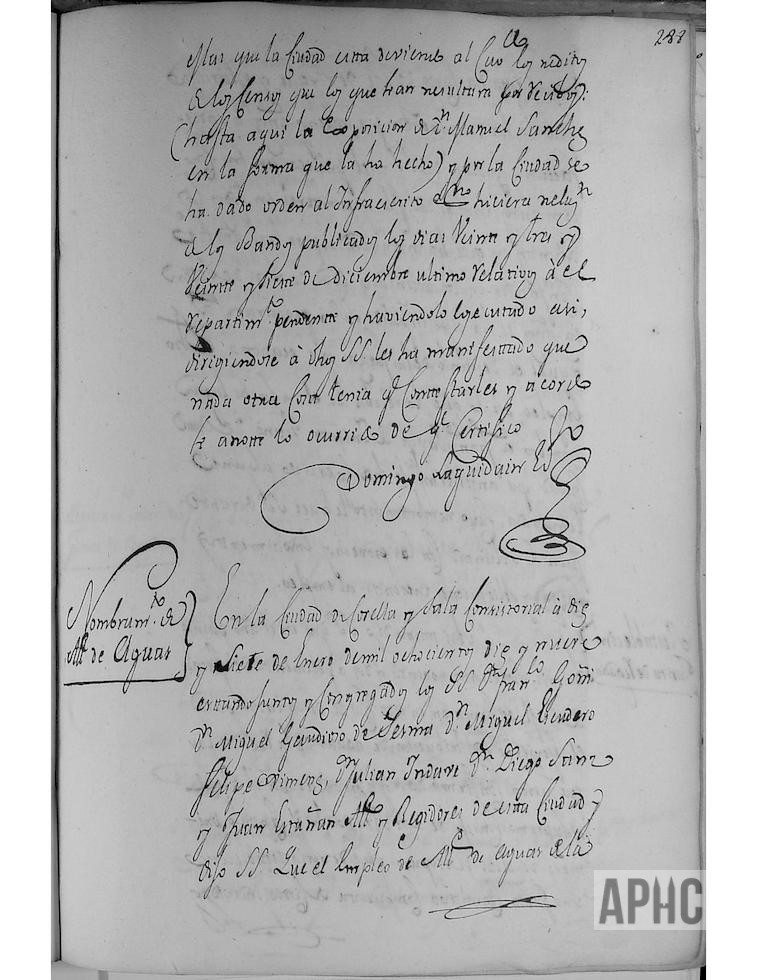 288
mas que la Ciudad esta deviene al los reditos
de los Censos que los que han resultara por recibos:
(hasta aqui la exposicion de Dn. Manuel Sanchez
en la forma que la ha hecho) y por la Ciudad se
ha dado orden al Infraescrito Esno hiciera
de los Bandos publicados los dias Veinte y tres y
Veinte y siete de diciembre ultimo relativos à el
repartimto. pendente y haviendolo egecutado asi,
dirigiendose à dhos SS les ha manifestado que
nada otra Cosa tenia qe. Contestarles y acordo
se anotte lo ocurrido de qe. Certifico Yo
Domingo Laquidain Es
Nombramto. de
Alle. de Aguas
En la Ciudad de Corella y Sala Consistorial à diez
y siete de Enero de mil ochocientos diez y nueve
estando juntos y Congregados los SS Dn. Franco. Goñi
Dn. Miguel Gaudioso de Sesma Dn. Miguel Escudero
Felipe Ximenez, Dn. Julian Indave Dn. Diego Sanz
y Juan Estañan Alle. y Regidores de esta Ciudad y
dijo SS Que el Empleo de Alle. de Aguas de la
APHC